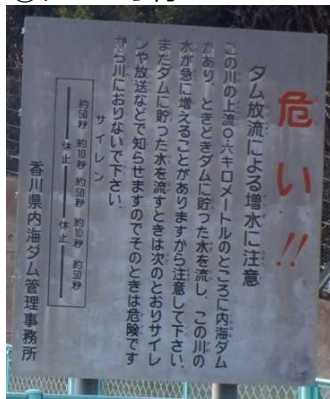 危い!!
ダム放流による増水に注意
この川の上流〇・六キロメートルのところに内海ダム
があり、ときどきダムに貯った水を流し、この川の
水が急に増えることがありますから注意して下さい.
またダムに貯った水を流すときは次のとおりサイレ
ンや放送などで知らせますのでそのときは危険です
から川におりないで下さい.
サイレン
約50秒 約10秒 約50秒 約10秒 約50秒
休止 休止
香川県内海ダム管理事務所